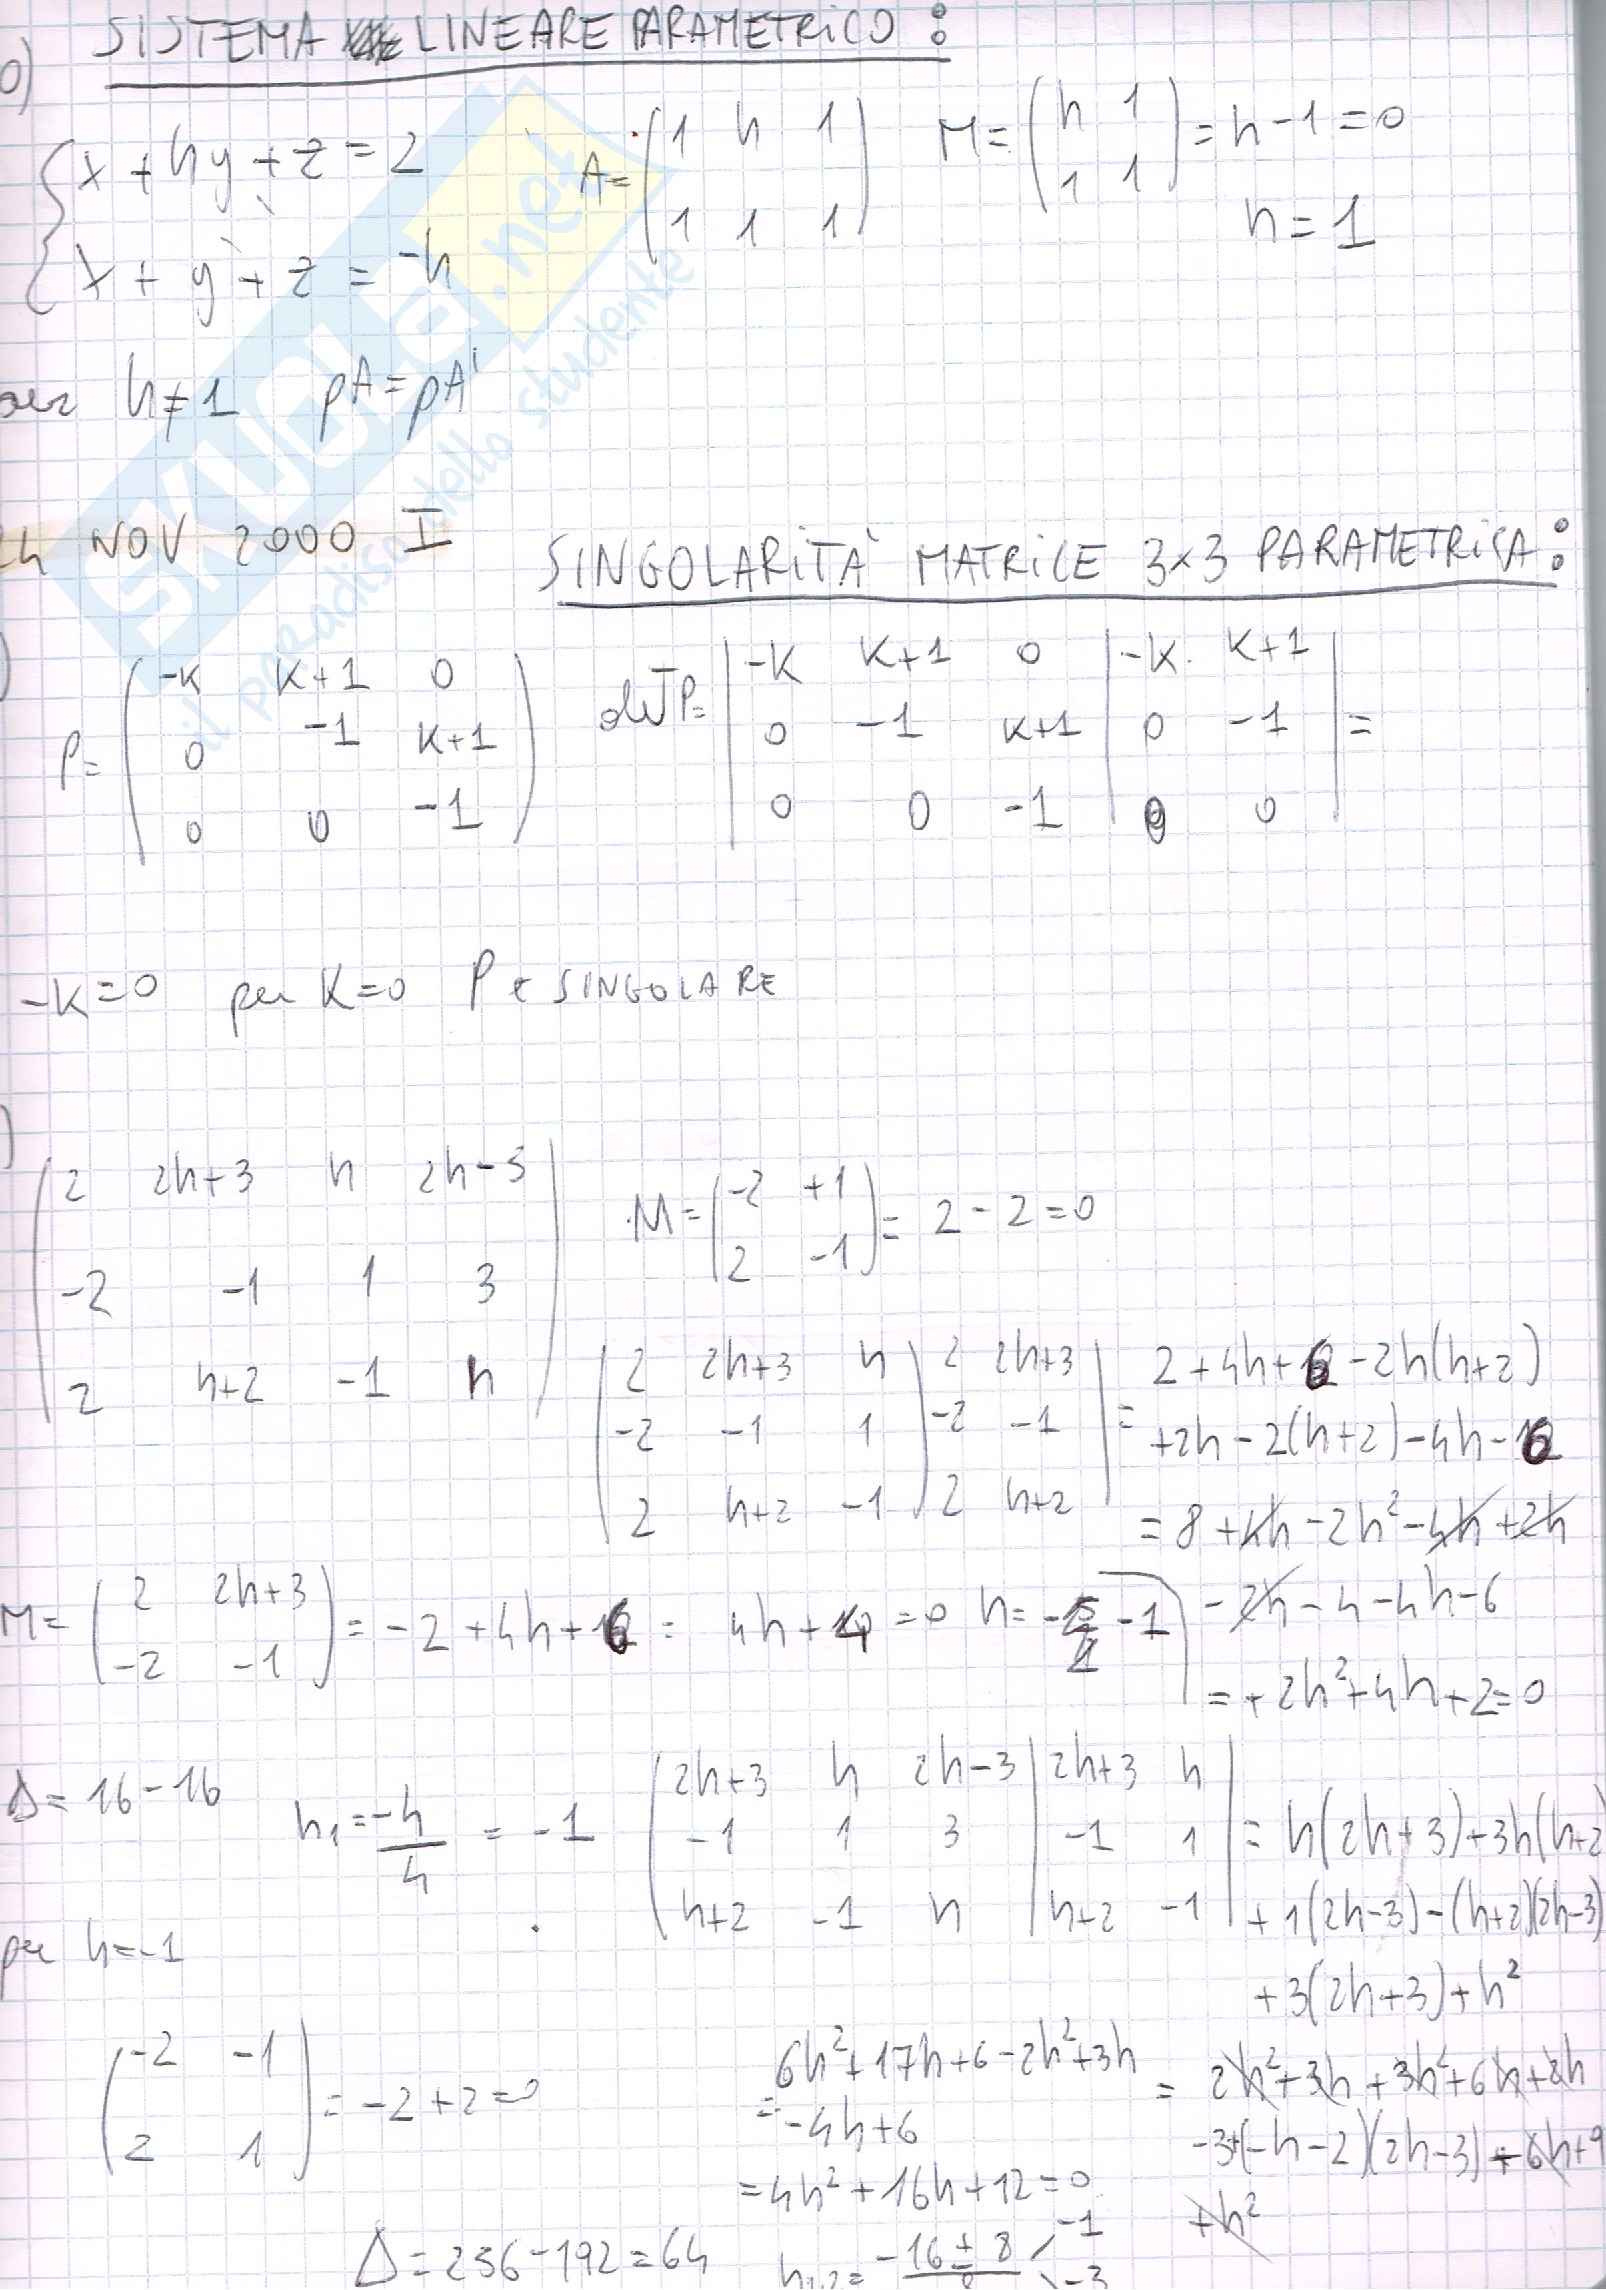 SISTEMA LINEARE PARAMETRICO:
0)
{ x + hy + z = 2
x + y + z = -h
A = ( 1 h 1
1 1 1 )
M = ( h 1
1 1 ) = h - 1 = 0
h = 1
per h ≠ 1 ρA = ρA'
24 NOV 2000 I
SINGOLARITÀ MATRICE 3×3 PARAMETRICA:
)
P = ( -K K+1 0
0 -1 K+1
0 0 -1 )
det P = | -K K+1 0 | -K K+1 |
0 -1 K+1 | 0 -1 | =
0 0 -1 | 0 0
-K = 0 per K = 0 P è SINGOLARE
)
( 2 2h+3 h 2h-3
-2 -1 1 3
2 h+2 -1 h )
M = ( -2 +1
2 -1 ) = 2 - 2 = 0
( 2 2h+3 h ) 2 2h+3 |
-2 -1 1 -2 -1 =
2 h+2 -1 2 h+2
2 + 4h + 6 - 2h(h+2)
+2h - 2(h+2) - 4h - 6
= 8 + 4h - 2h² - 4h + 2h
- 2h - 4 - 4h - 6
= + 2h² + 4h + 2 = 0
M = ( 2 2h+3
-2 -1 ) = -2 + 4h + 6 = 4h + 4 = 0 h = -1
Δ = 16 - 16
h₁ = -4/4 = -1
( 2h+3 h 2h-3 | 2h+3 h |
-1 1 3 | -1 1 | = h(2h+3) + 3h(h+2
h+2 -1 h | h+2 -1 | + 1(2h-3) - (h+2)(2h-3)
+ 3(2h+3) + h²
per h = -1
( -2 -1
2 1 ) = -2 + 2 = 0
= 2h² + 3h + 3h² + 6h + 2h
-3 + (-h-2)(2h-3) + 6h + 9
+h²
= 6h² + 17h + 6 - 2h² + 3h
- 4h + 6
= 4h² + 16h + 12 = 0
Δ = 256 - 192 = 64
h₁,₂ = -16 ± 8 / 8 -1
-3